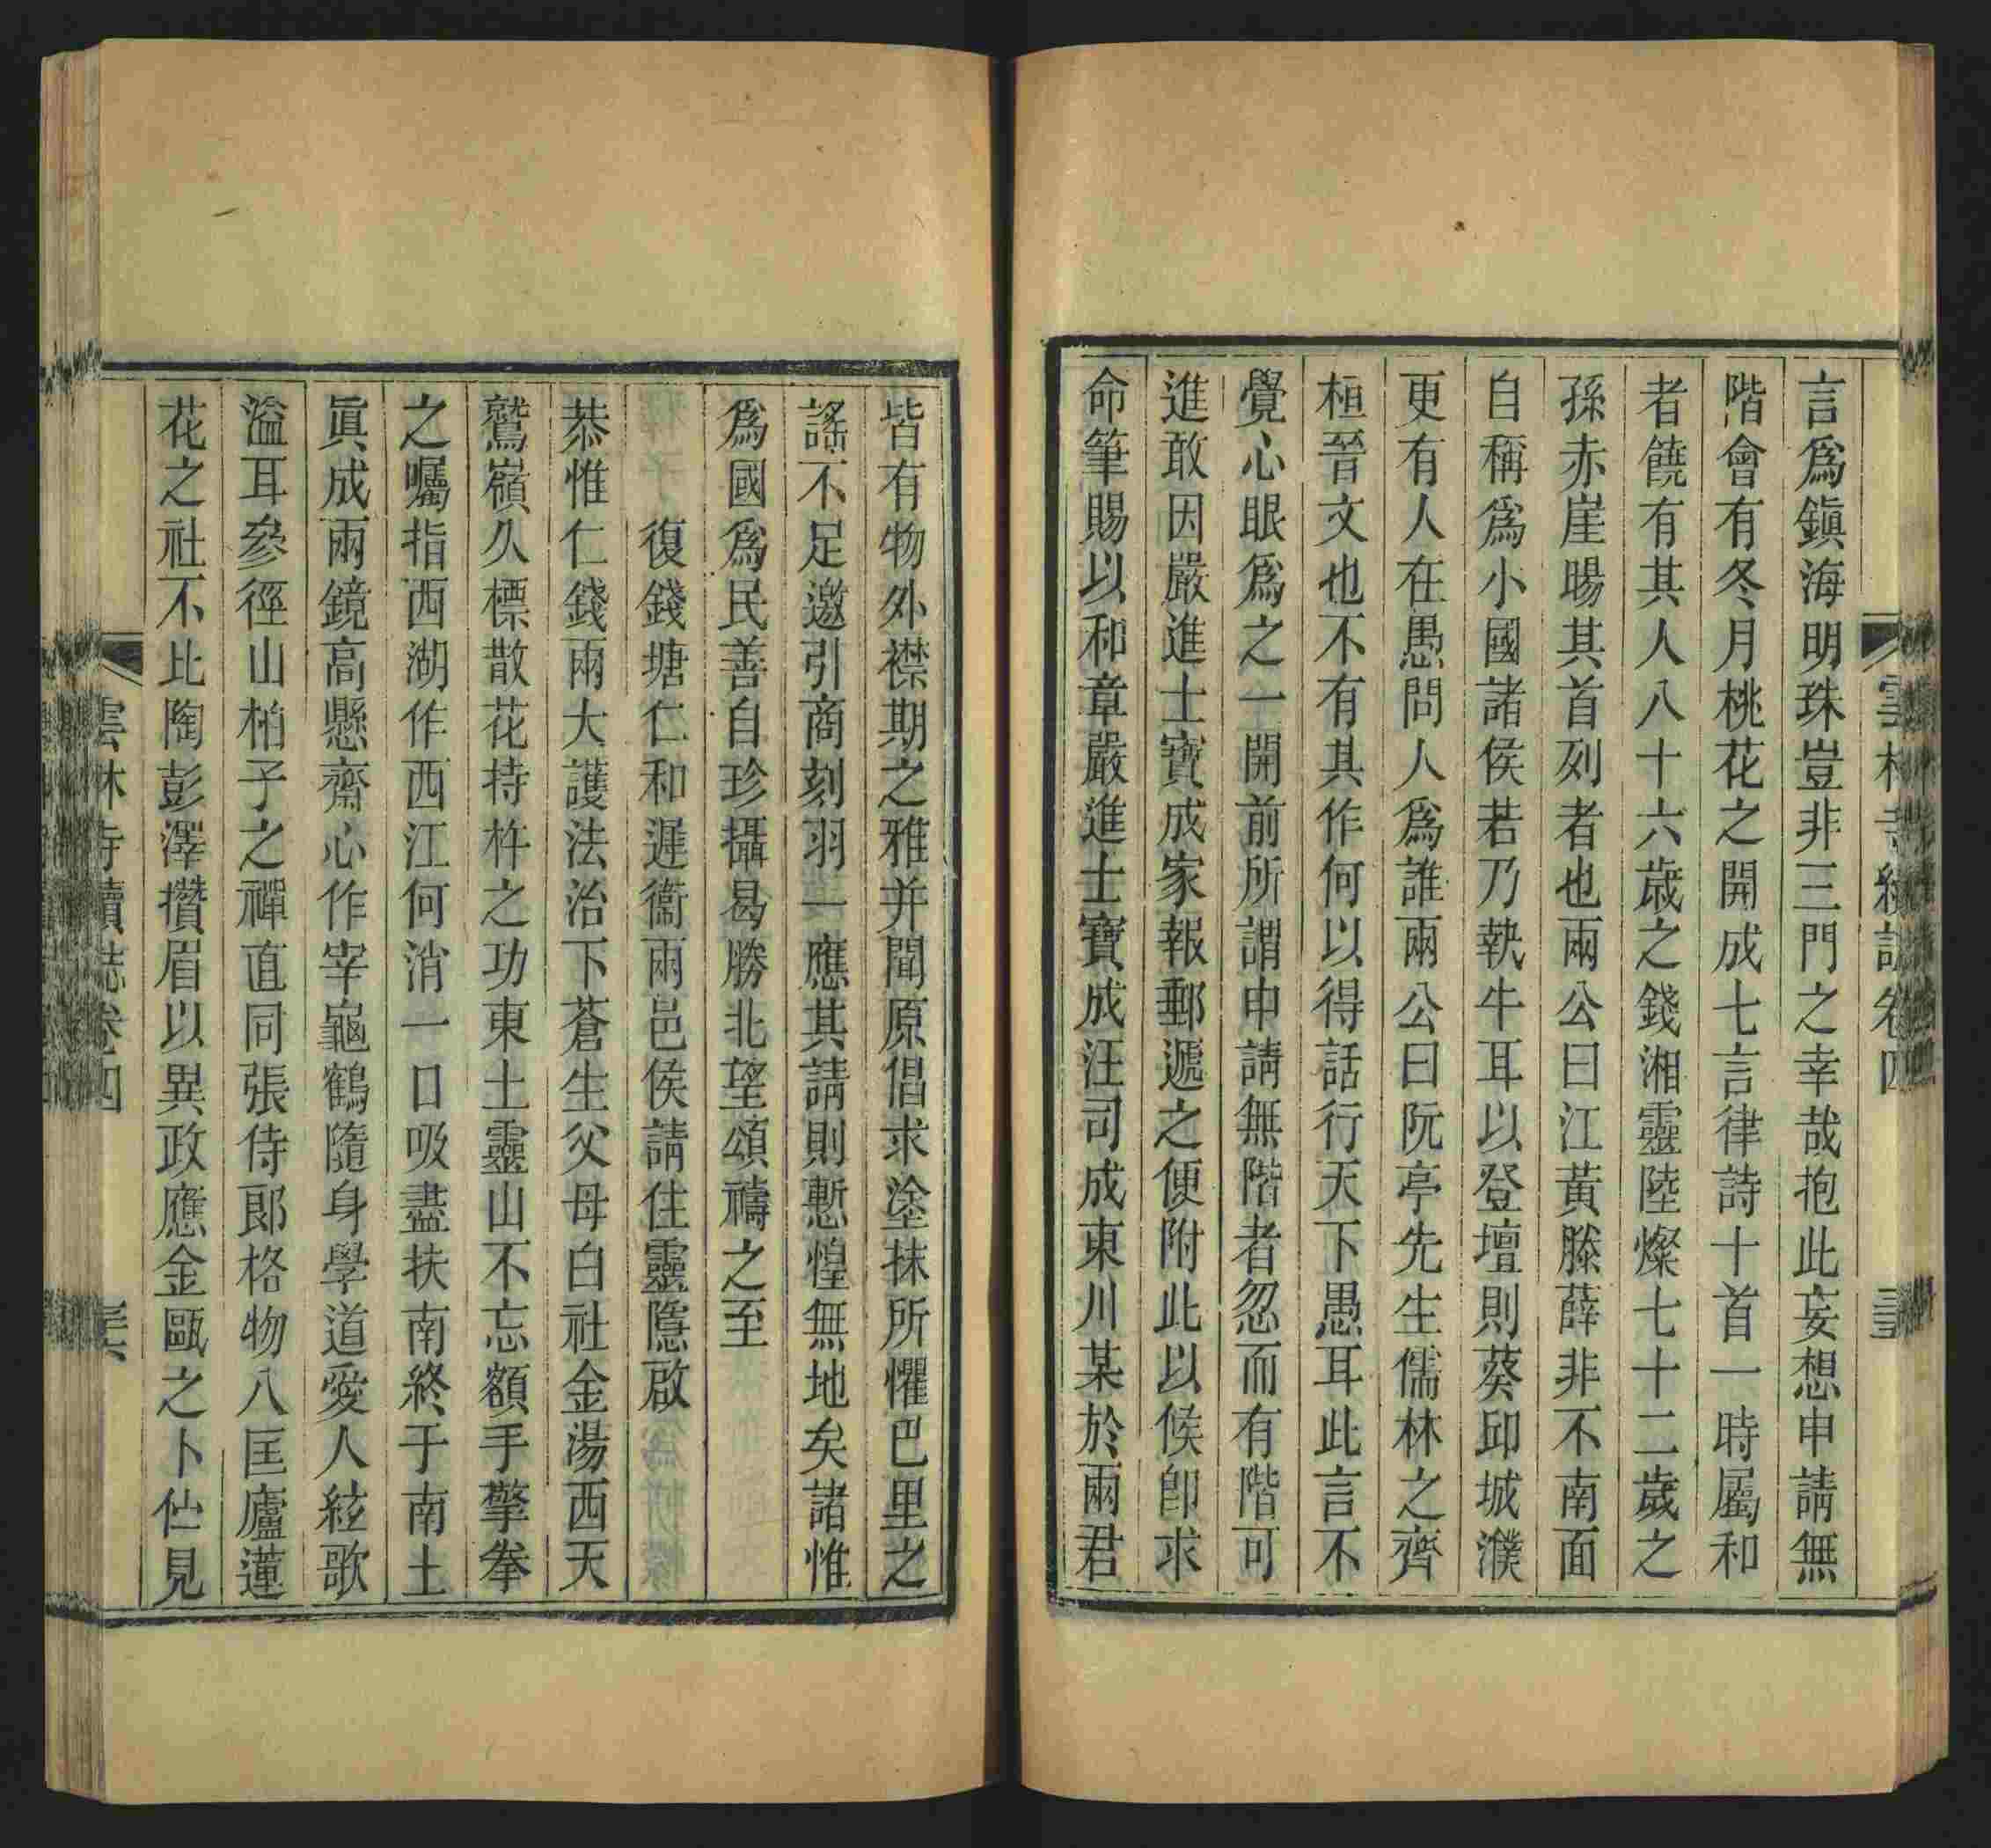 言爲鎭海明珠豈非三門之幸哉抱此妄想申請無
階會有冬月桃花之開成七言律詩十首一時屬和
者饒有其人八十六歲之錢湘靈陸燦七十二歲之
孫赤崖暘其首列者也兩公曰江黃滕薛非不南面
自稱爲小國諸侯若乃執牛耳以登壇則葵邱城濮
更有人在愚問人爲誰兩公曰阮亭先生儒林之齊
桓晉文也不有其作何以得話行天下愚耳此言不
覺心眼爲之一開前所謂申請無階者忽而有階可
進敢因嚴進士寶成家報郵遞之便附此以候卽求
命筆賜以和章嚴進士寶成汪司成東川某於兩君
皆有物外襟期之雅并聞原倡求塗抹所懼巴里之
謠不足邀引商刻羽一應其請則慙惶無地矣諸惟
爲國爲民善自珍攝曷勝北望頌禱之至
復錢塘仁和遲衞兩邑侯請住靈隱啟
恭惟仁錢兩大護法治下蒼生父母白社金湯西天
鷲嶺久標散花持杵之功東土靈山不忘額手擎拳
之囑指西湖作西江何消一口吸盡扶南終于南土
眞成兩鏡高懸齋心作宰龜鶴隨身學道愛人絃歌
溢耳參徑山柏子之禪直同張侍郞格物八匡廬蓮
花之社不比陶彭澤攢眉以異政應金甌之卜佇見
雲林寺續誌卷四